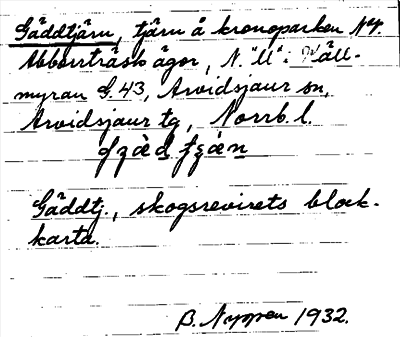 Gäddtjärn, tjärn å kronoparken N.V.
Abborrträsks ägor, N. "U" i Käll-
myran G. 43, Arvidsjaur sn,
Arvidsjaur tg, Norrb. l.
Gäddtj., skogsrevirets block-
karta.
B. Nyppen 1932.